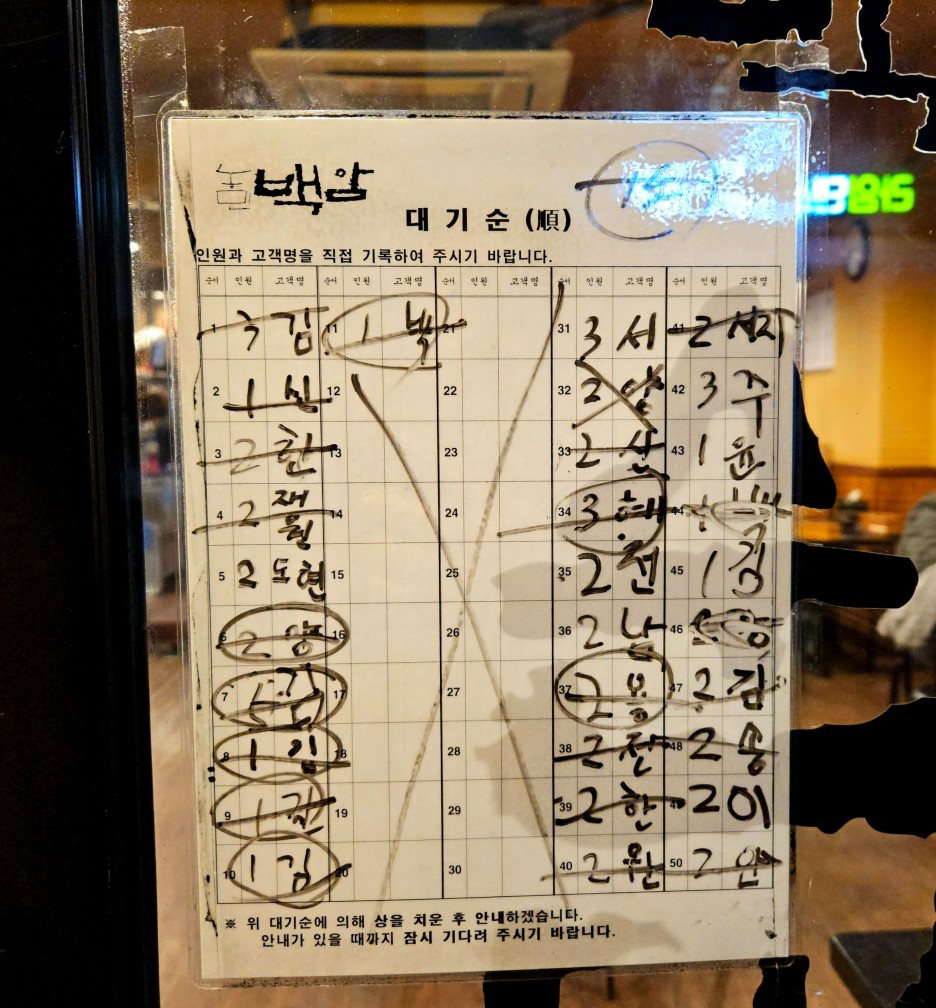 돔백암
대 기 순 (順)
인원과 고객명을 직접 기록하여 주시기 바랍니다.
순서 인원 고객명 순서 인원 고객명 순서 인원 고객명 순서 인원 고객명 순서 인원 고객명
1 3 김 11 1 박 21 31 3 세 41 2
2 1 신 12 22 32 2 양 42 3 주
3 2 한 13 23 33 2 43 1 윤
4 2 14 24 34 3 혜 44
5 2 도현 15 25 35 2 전 45 1 김
6 2 양 16 26 36 2 남 46
7 17 27 37 2 용 47 2 김
8 1 김 18 28 38 2 전 48 2 송
9 1 19 29 39 2 한 49 2 이
10 1 김 20 30 40 2 완 50 2 안
※ 위 대기순에 의해 상을 치운 후 안내하겠습니다.
안내가 있을 때까지 잠시 기다려 주시기 바랍니다.